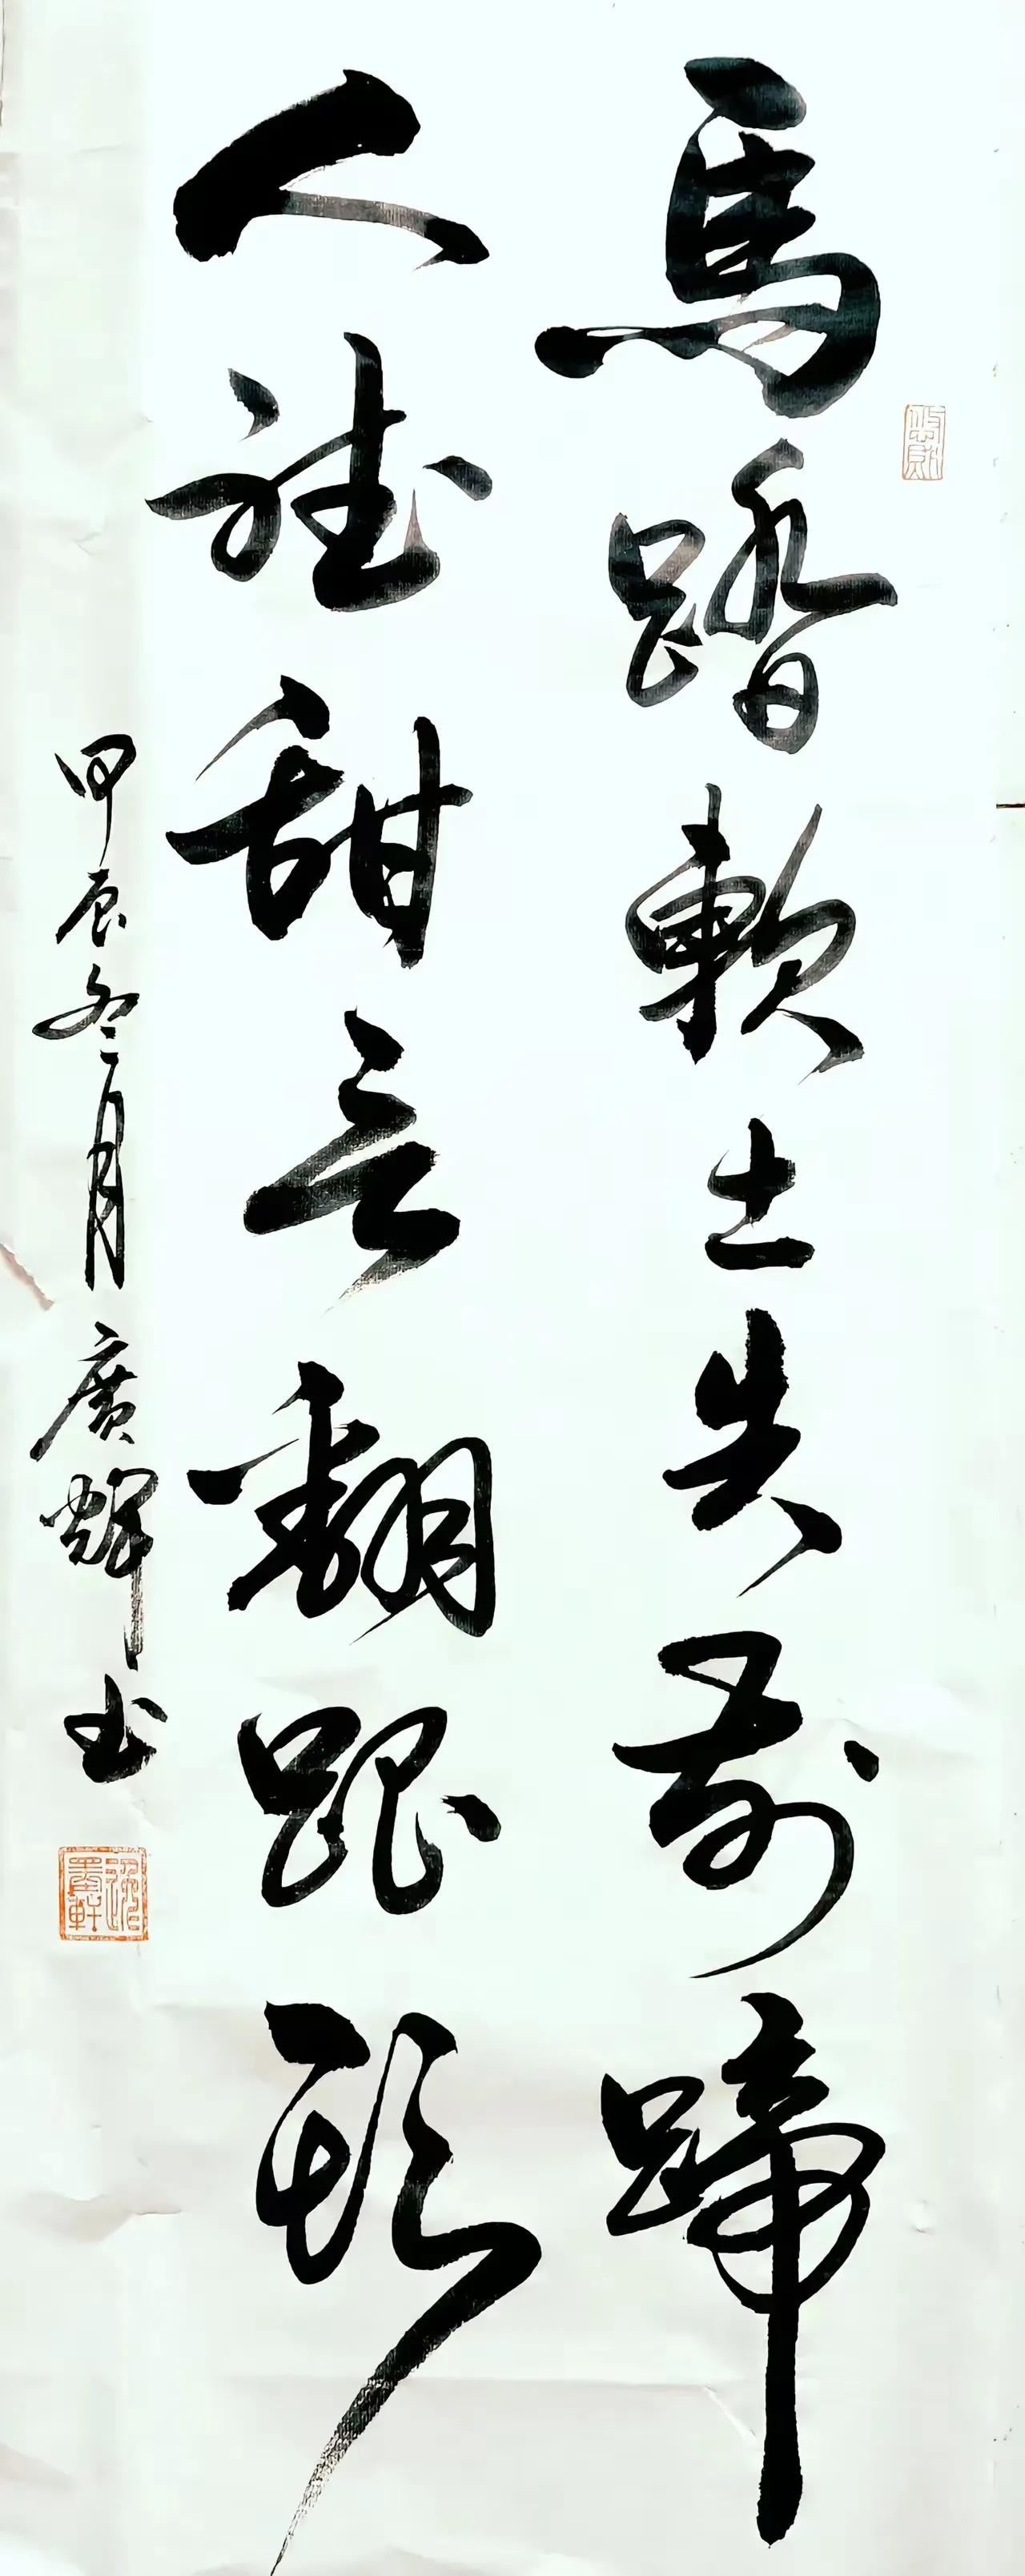 馬踏軟土失前蹄
人聽甜言翻跟頭
甲辰冬月廣輝书